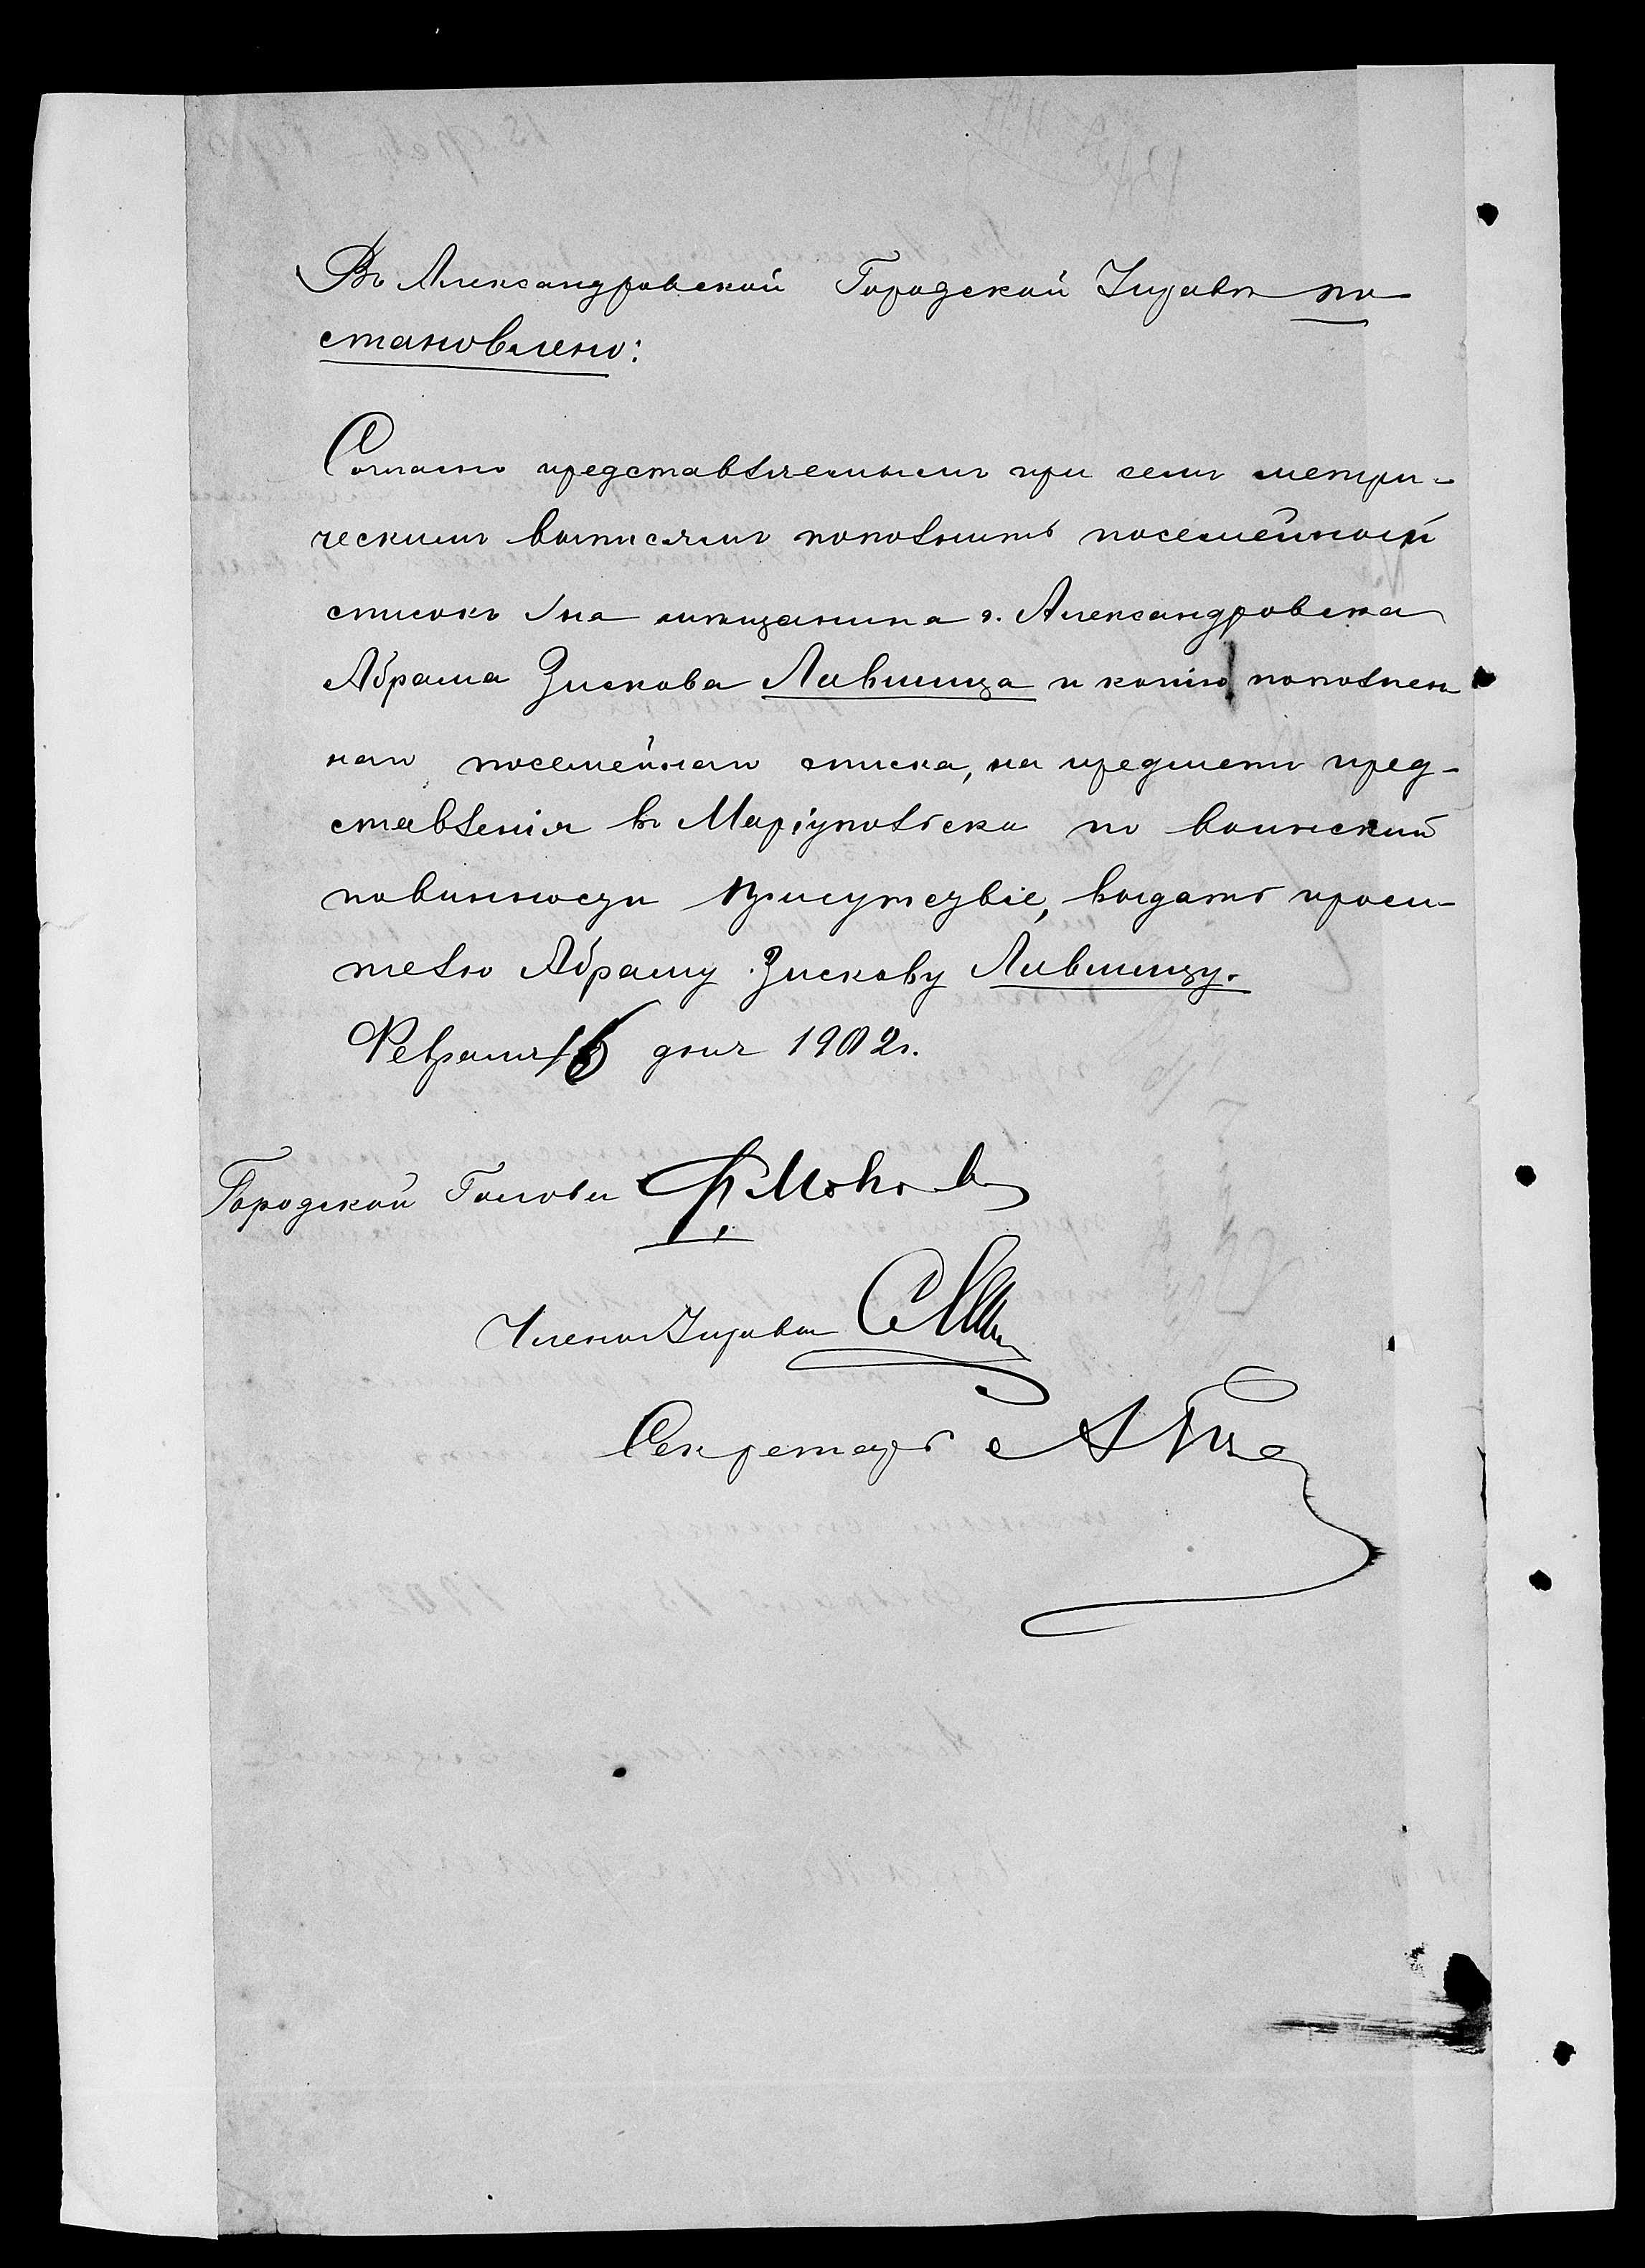 Въ Александровской Городской Управѣ по-
становлено:
Согласно представленнымъ при семъ метри-
ческимъ выписямъ пополнить посемейный
списокъ на мѣщанина г. Александровска
Абрама Зискова Лившица и копію пополнен
наго посемейнаго списка, на предметъ пред-
ставленія въ Маріупольское по воинской
повинности Присутствіе, выдать проси-
телю Абраму Зискову Лившицу.
Февраля 16 дня 1902 г.
Городской Голова Ф. Мовчановъ
Членъ Управы
Секретарь